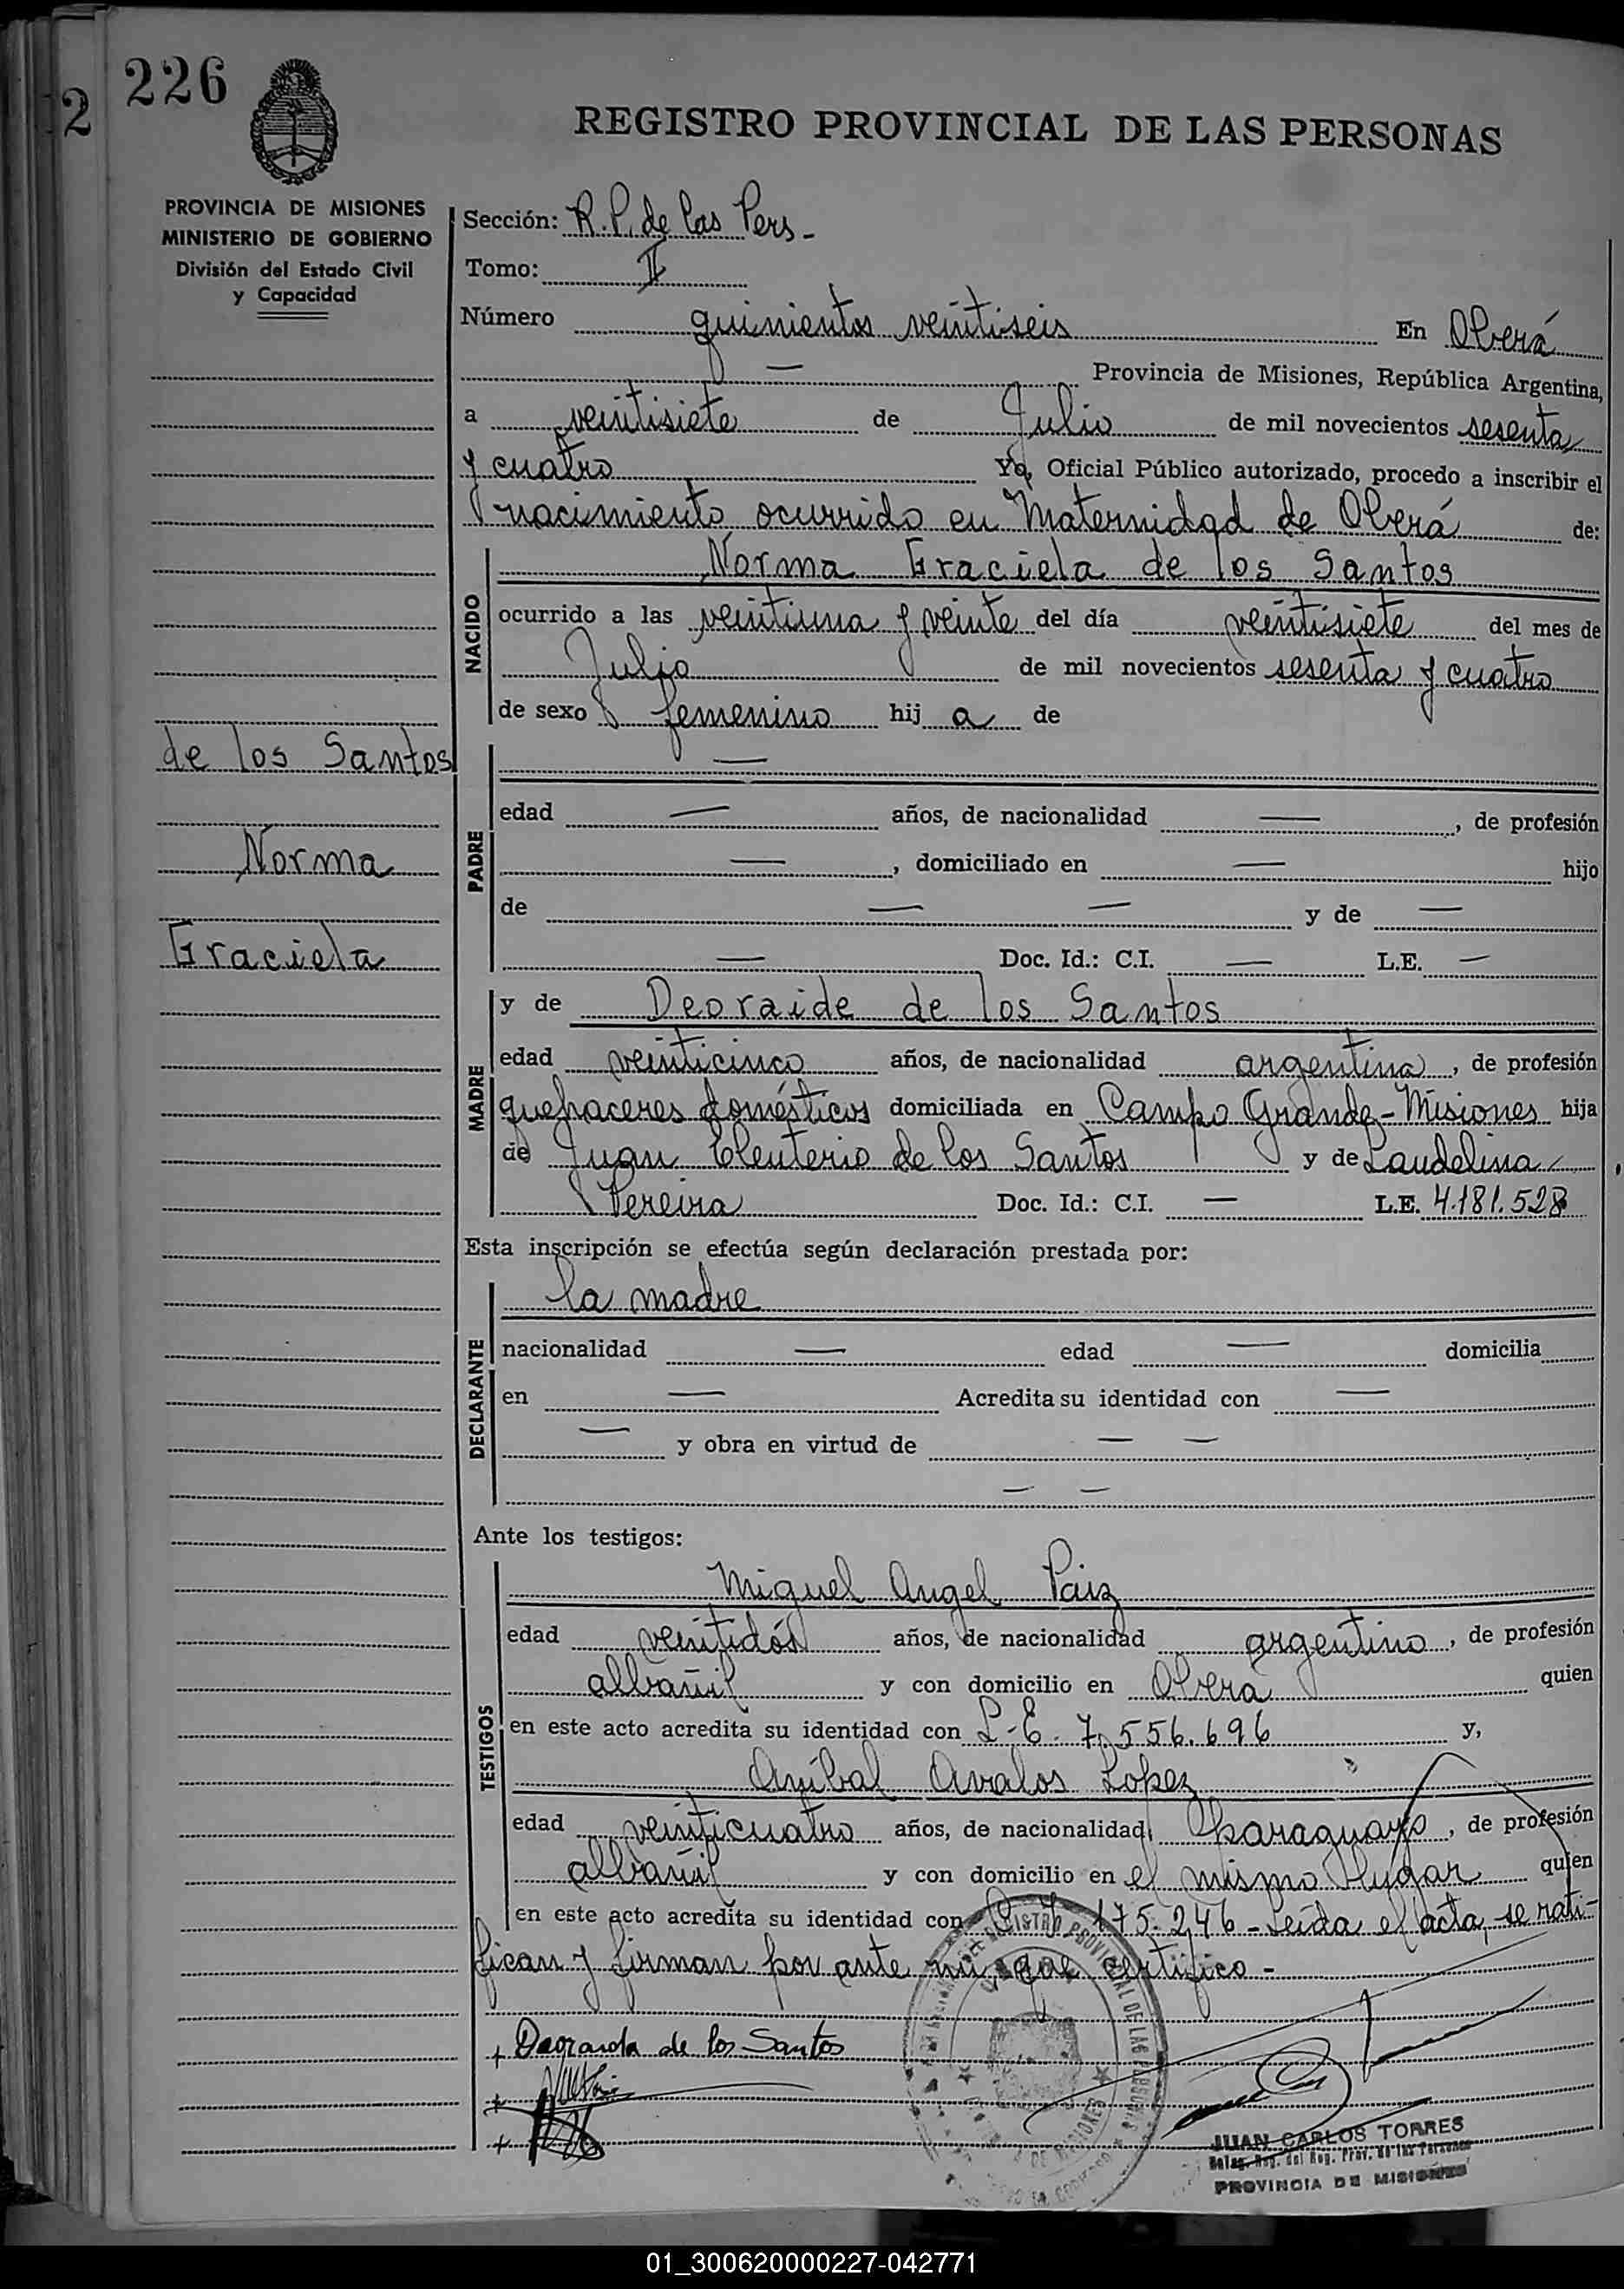 2
226
REGISTRO PROVINCIAL DE LAS PERSONAS
PROVINCIA DE MISIONES
MINISTERIO DE GOBIERNO
División del Estado Civil
y Capacidad
Sección: R. P. de las Pers -
Tomo: II
Número quinientos veintiseis En Oberá
— Provincia de Misiones, República Argentina,
a veintisiete de Julio de mil novecientos sesenta
y cuatro Yo, Oficial Público autorizado, procedo a inscribir el
nacimiento ocurrido en Maternidad de Oberá de:
NACIDO
Norma Graciela de los Santos
ocurrido a las veintiuna y veinte del día veintisiete del mes de
Julio de mil novecientos sesenta y cuatro
de sexo femenino hij a de
de los Santos
Norma
Graciela
PADRE
—
edad — años, de nacionalidad —, de profesión
—, domiciliado en — hijo
de — — y de —
— Doc. Id.: C.I. — L.E. —
MADRE
y de Deoraide de los Santos
edad veinticinco años, de nacionalidad argentina, de profesión
quehaceres domésticos domiciliada en Campo Grande - Misiones hija
de Juan Eleuterio de los Santos y de Laudelina
Pereira Doc. Id.: C.I. — L.E. 4.181.528
Esta inscripción se efectúa según declaración prestada por:
DECLARANTE
la madre
nacionalidad — edad — domicilia
en — Acredita su identidad con —
— y obra en virtud de — —
— —
Ante los testigos:
TESTIGOS
Miguel Angel Paiz
edad veintidós años, de nacionalidad argentino, de profesión
albañil y con domicilio en Oberá quien
en este acto acredita su identidad con L.E. 7.556.696 y,
Aníbal Avalos Lopez
edad veinticuatro años, de nacionalidad paraguayo, de profesión
albañil y con domicilio en el mismo lugar quien
en este acto acredita su identidad con 175.246 - Leída el acta, se rati-
fican y firman por ante mí, que certifico -
+ Deoraida de los Santos
+
+
REGISTRO PROVINCIAL DE LAS PERSONAS
JUAN CARLOS TORRES
PROVINCIA DE MISIONES
01_300620000227-042771